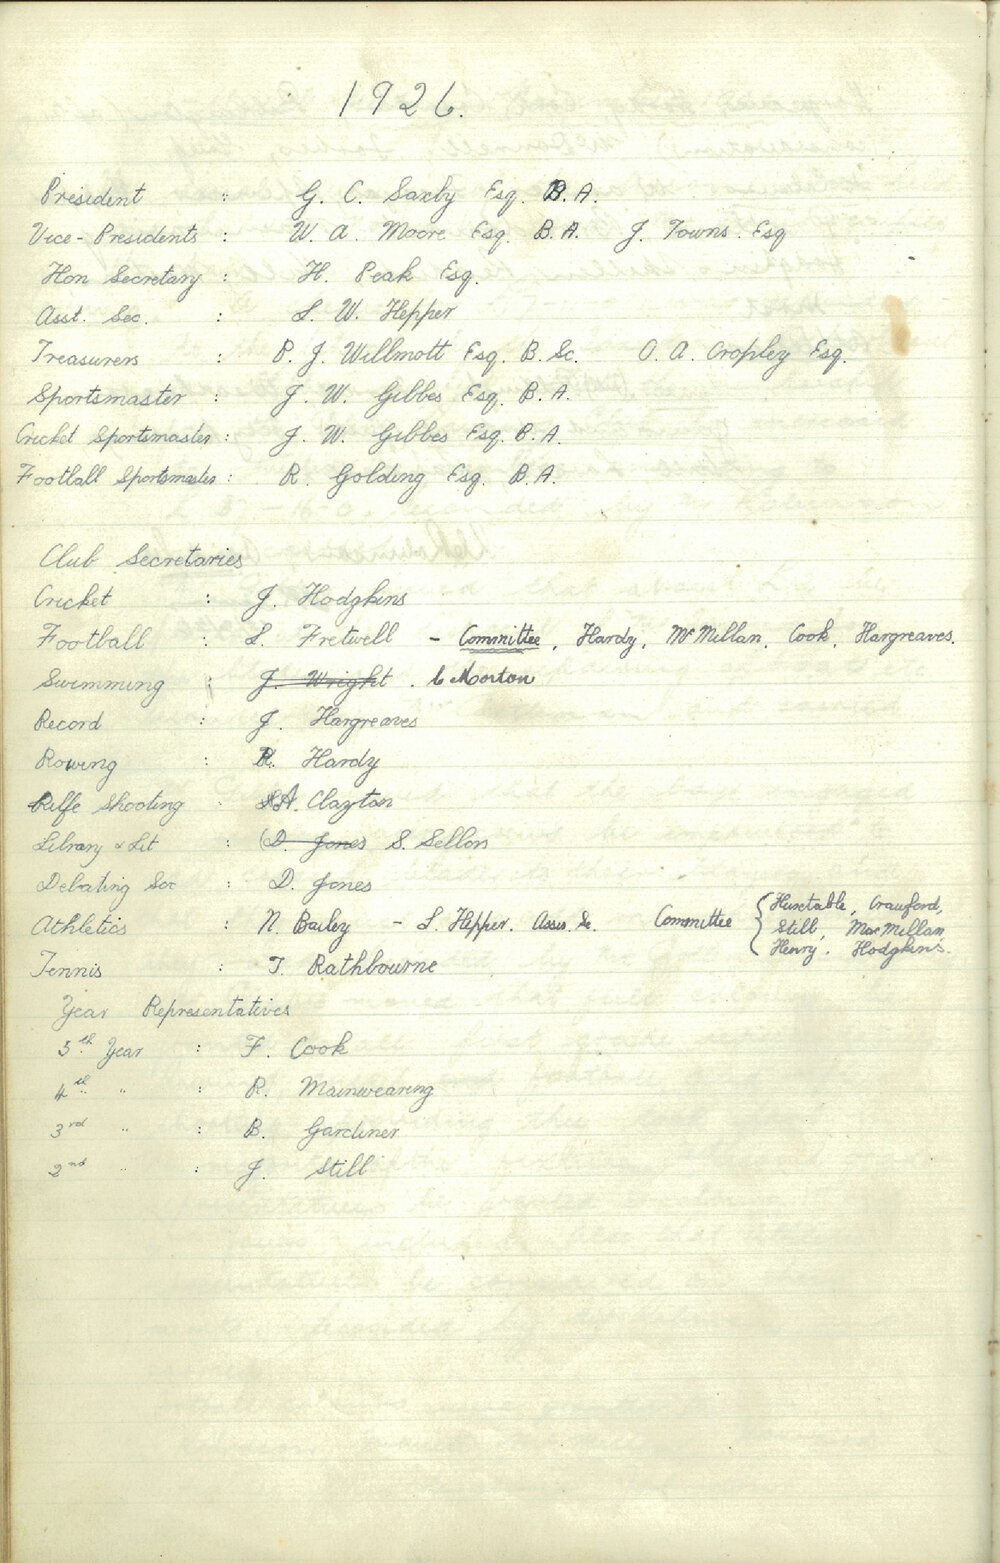 1926.
President : G. C. Saxby Esq. B.A.
Vice-Presidents : W. A. Moore Esq. B.A. J. Towns. Esq
Hon Secretary : H. Peak Esq.
Asst. Sec. : L. W. Hepper
Treasurers : P. J. Willmott Esq. B.Sc. O. A. Cropley Esq.
Sportsmaster : J. W. Gibbes Esq. B.A.
Cricket Sportsmaster : J. W. Gibbes Esq. B.A.
Football Sportsmaster : R. Golding Esq. B.A.
Club Secretaries
Cricket : J. Hodgkins
Football : L. Fretwell - Committee, Hardy, McMillan, Cook, Hargreaves.
Swimming : J. Wright . C Morton
Record : J. Hargreaves
Rowing : R. Hardy
Rifle Shooting : A. Clayton
Library & Lit : (D. Jones S. Sellors
Debating Soc : D. Jones
Athletics : N. Bailey - L. Hepper. Asses. Sc. Committee { Huxtable, Crawford,
Still, MacMillan,
Henry. Hodgkins.
Tennis : T. Rathbourne
Year Representatives
5th Year : F. Cook
4th " : R. Mainwearing
3rd " : B. Gardiner
2nd " : J. Still